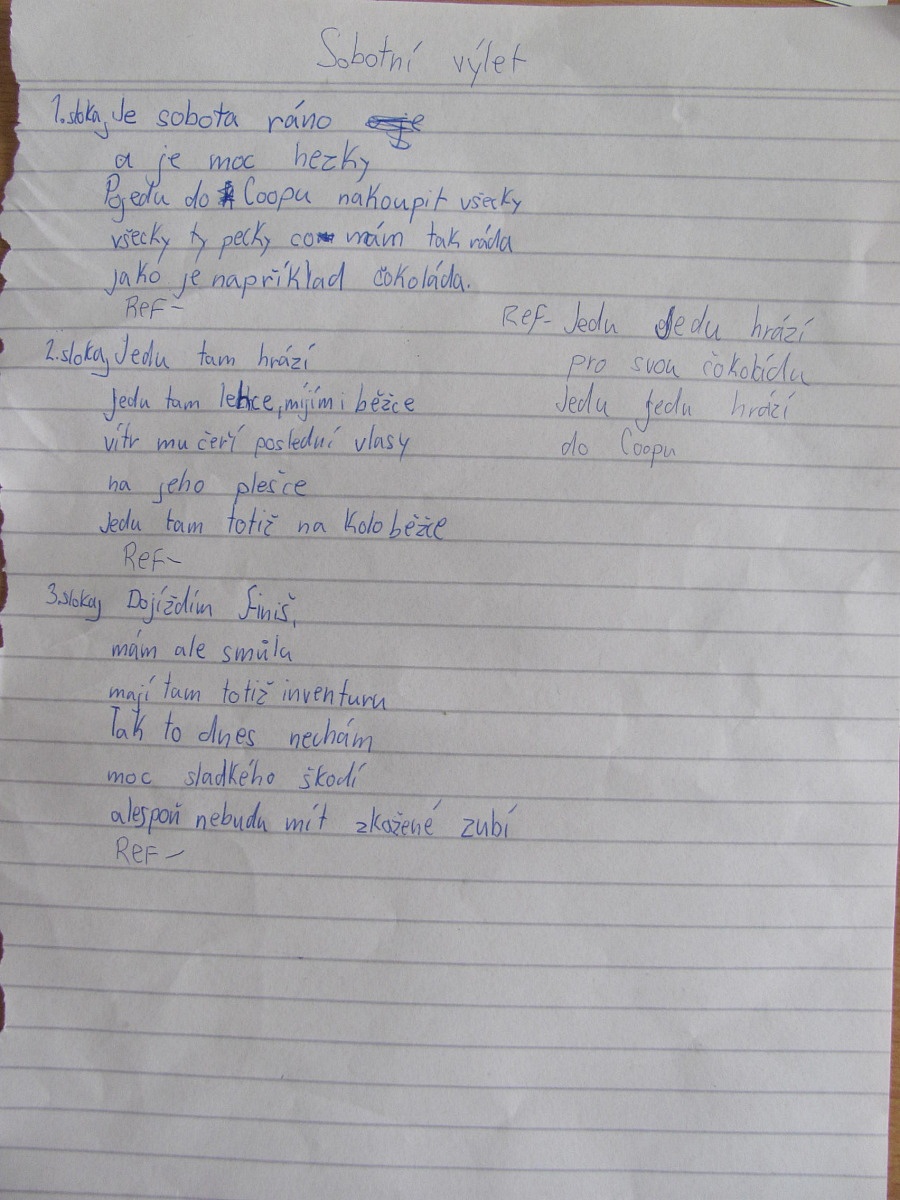 Sobotní výlet
1.sloka, Je sobota ráno
a je moc hezky
Pojedu do Coopu nakoupit všecky
všecky ty pecky co mám tak ráda
jako je například čokoláda.
Ref-
2.sloka, Jedu tam hrází
Jedu tam lehce, míjím i běžce
vítr mu čeří poslední vlasy
na jeho plešce
Jedu tam totiž na koloběžce
Ref-
3.sloka, Dojíždím finiš,
mám ale smůlu
mají tam totiž inventuru
Tak to dnes nechám
moc sladkého škodí
alespoň nebudu mít zkažené zubí
Ref-
Ref- Jedu Jedu hrází
pro svou
Jedu jedu hrází
do Coopu